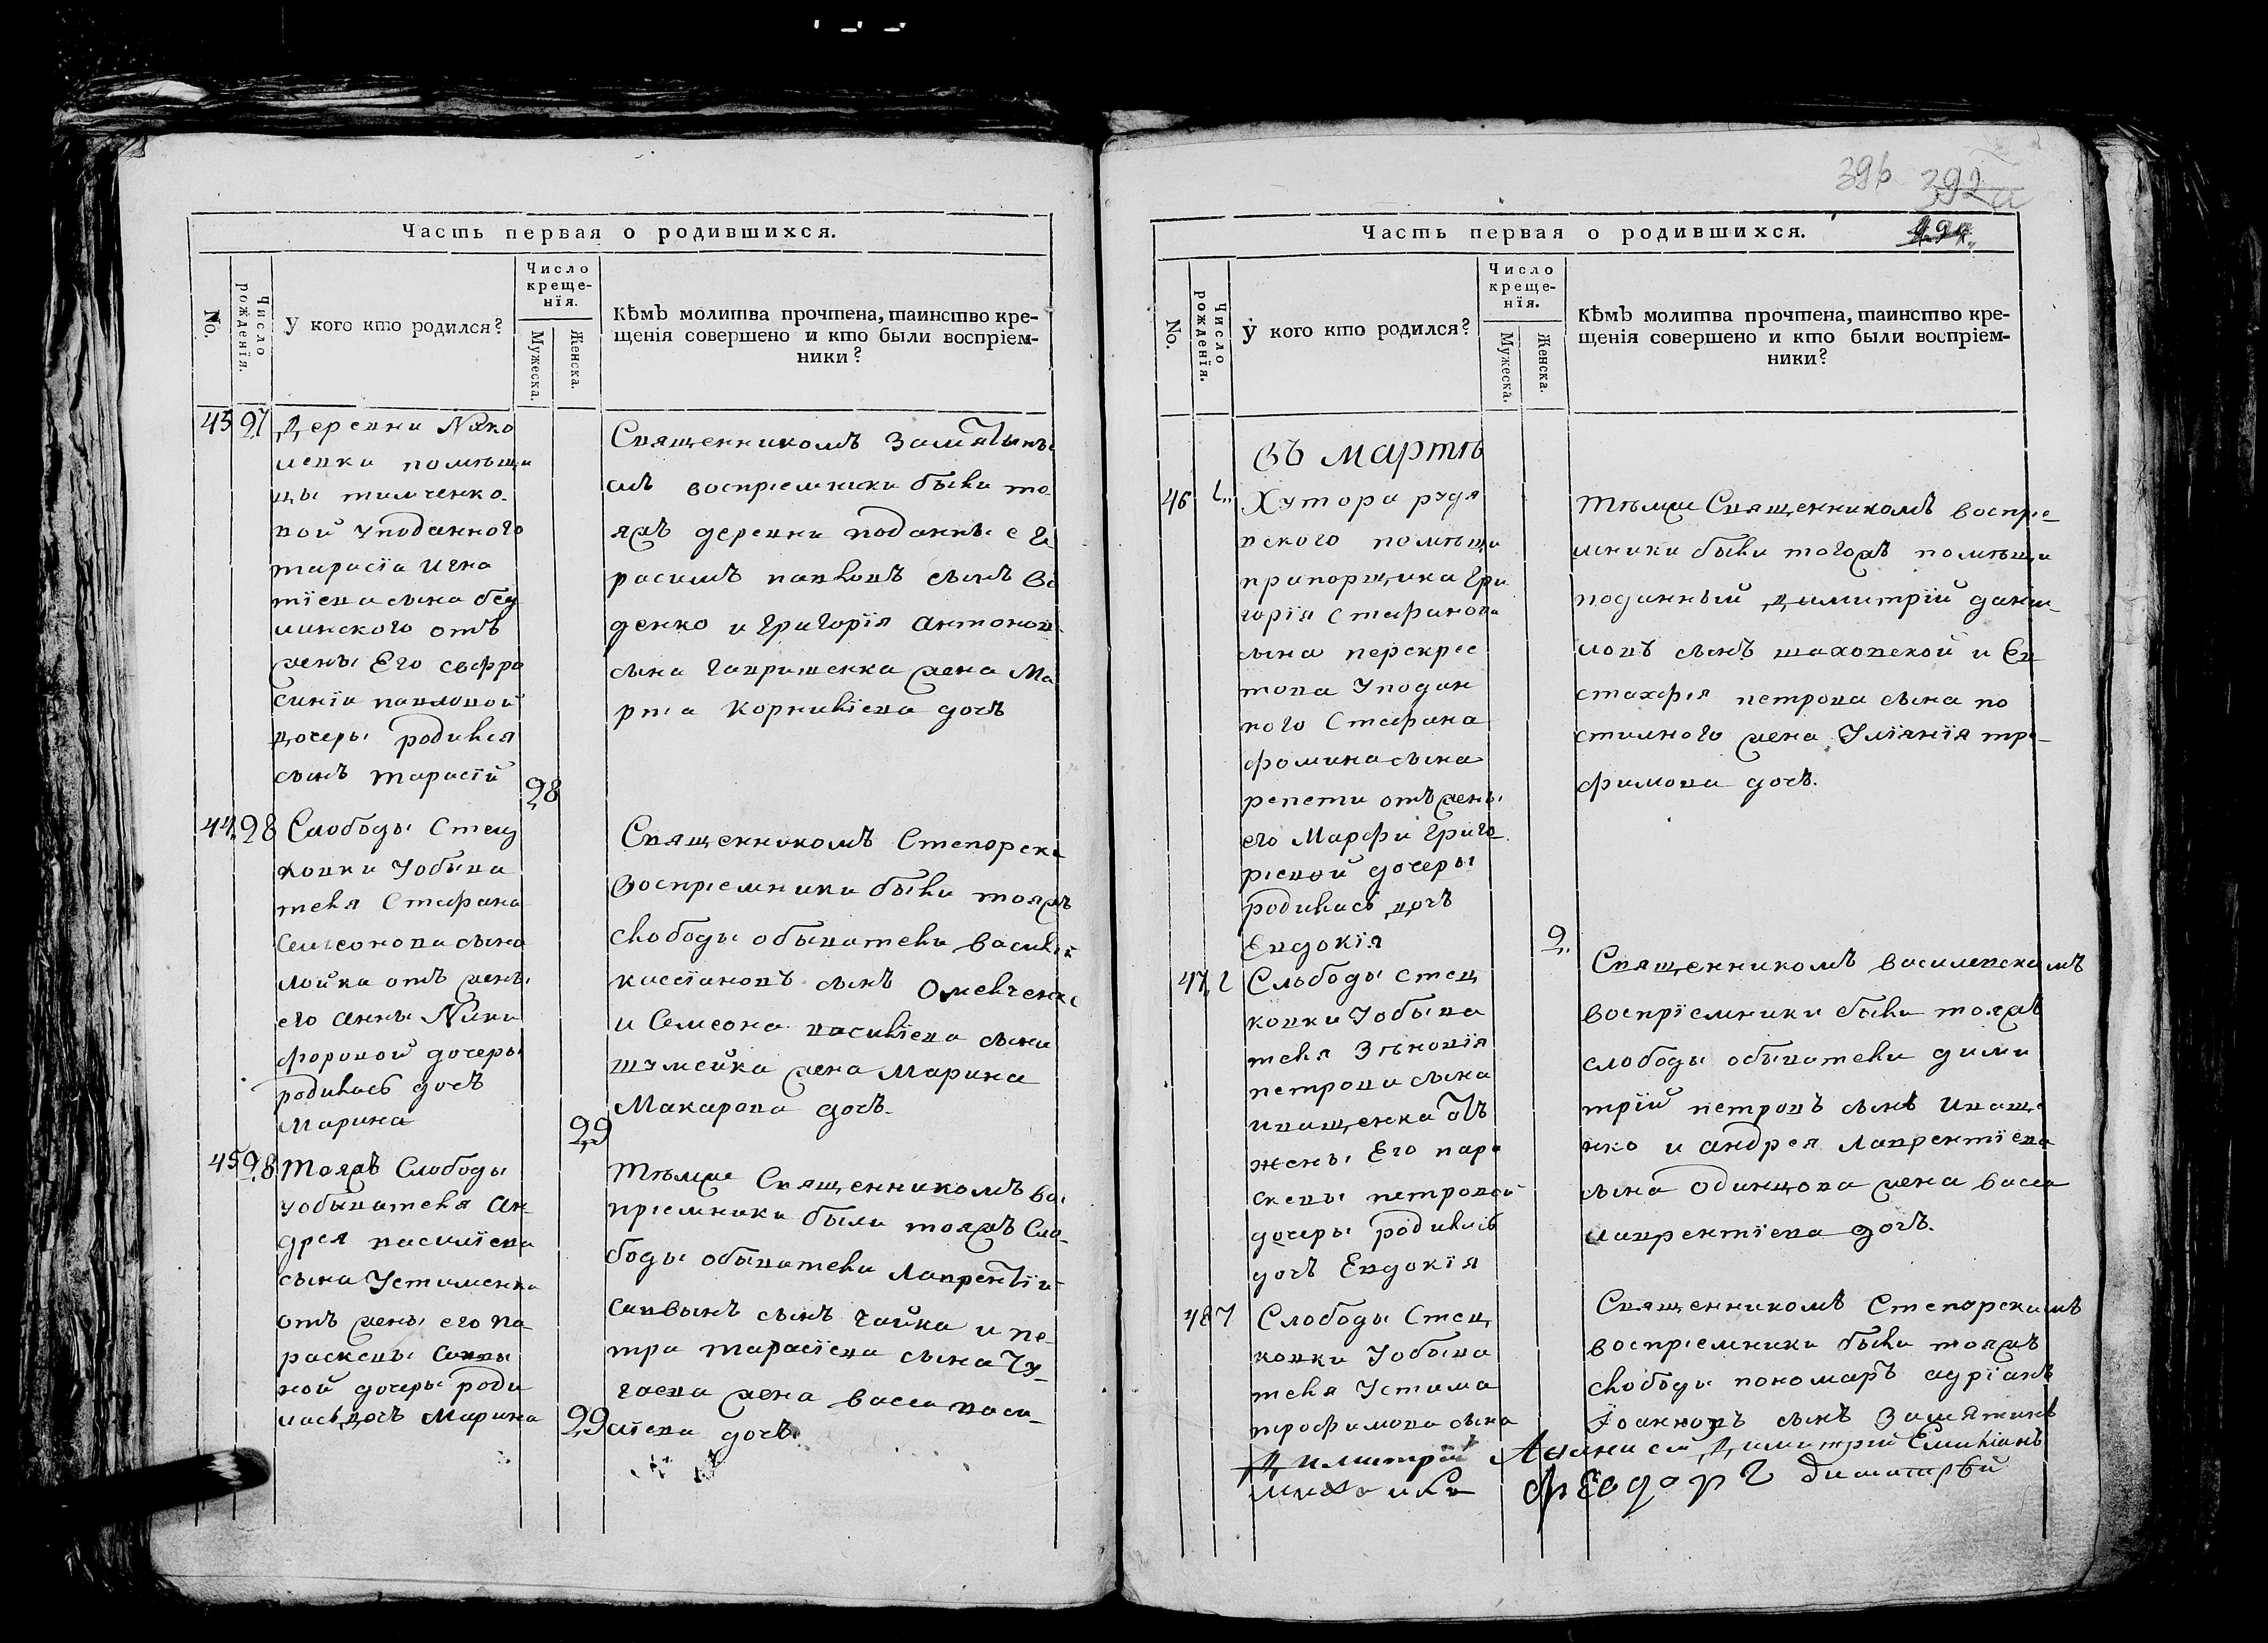 Часть первая о родившихся.
No.
Число рожденїя.
У кого кто родился?
Число
креще-
нїя.
Мужеска.
Женска.
Кѣмъ молитва прочтена, таинство кре-
щенія совершено и кто были воспріем-
ники?
43 27 Деревни Яко
влевки помѣщи
цы тимченко-
вой у поданного
тарасїа Игна
тїева сына бед
линского отъ
жены Его ефро
синїи павловой
дочеры родился
сынъ тарасїй
28
Священникомъ Замятины
мъ воспрїемники были то
яжъ деревни поданные Ге
расимъ павловъ сынъ Ве
денко и Григорїя антонов
сына гавришенка жена Ма
рѳа Корнилїева дочъ
44 28 Слободы Стец
ковки У обыва
теля Стефана
Семеонова сына
лойка отъ жены
его анны Ники
форовой дочеры
родилась дочъ
Марина
29
Священникомъ Стеопорски
Воспрїемники были тояжъ
слободы обыватели василїй
кассїановъ сынъ Омелченко
и Семеона василїева сына
шумейка жена Марина
Макарова дочъ.
45 28 Тояжъ Слободы
у обывателя Ан
дрея василїева
сына Устименка
отъ жены его Па
раскевы Саввы
ной дочеры роди
лась дочъ Марина
29
Тѣмже Священникомъ во
прїемники были тояжъ Сло-
боды обыватели Лаврентїй
Саввынъ сынъ чайка и пе-
тра тарасїева сына Чу-
гаева жена васса васи-
лїева дочъ.
396 392
Часть первая о родившихся.
No.
Число рожденїя.
У кого кто родился?
Число
креще-
нїя.
Мужеска.
Женска.
Кѣмъ молитва прочтена, таинство кре-
щенія совершено и кто были воспріем-
ники?
Въ мартѣ
46 1. Хутора рудя
вского помѣщи
прапорщика Гри
горїя Стефанова
сына перекрес
това У подан
ного Стефана
фомина сына
репети отъ жены
его Марфи Григо
рїевой дочеры
родилась дочъ
Евдокїя
2.
Тѣмже Священникомъ воспрїе
мники были тогожъ помѣщи
поданный димитрїй дани-
ловъ сынъ шаховской и Ев
стахфїя петрова сына по
стилного жена Улїянїя тро-
фимова дочъ.
47 2 Слободы стец
ковки У обыва
теля Зѣновїя
петрова сына
иващенка отъ
жены Его пара
скевы петровой
дочеры родилась
дочъ Евдокїя
Священникомъ василевскимъ
воспрїемники были тояжъ
слободы обыватели дими
трїй петровъ сынъ Иваще
нко и андрея лаврентїева
сына Одинцова жена васса
лаврентїева дочъ.
48 7 Слободы Стец
ковки У обыва
теля Устима
трофимова сына
Священникомъ Стеопорскимъ
воспрїемники были тояжъ
слободы пономаръ адрїанъ
Їоанновъ сынъ Замятинъ